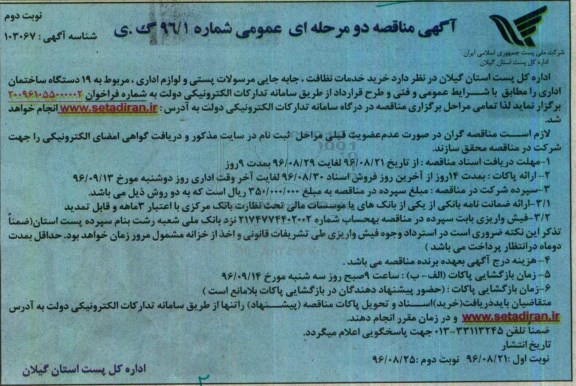 نوبت دوم
آگهی مناقصه دو مرحله ای عمومی شماره ۹۶/۱ گ.ی
شناسه آگهی : ۱۰۳۰۶۷
شرکت ملی پست جمهوری اسلامی ایران
اداره کل پست استان گیلان
اداره کل پست استان گیلان در نظر دارد خرید خدمات نظافت ، جابه جایی مرسولات پستی و لوازم اداری ، مربوط به ۱۹ دستگاه ساختمان
اداری را مطابق با شرایط عمومی و فنی و طرح قرارداد از طریق سامانه تدارکات الکترونیکی دولت به شماره فراخوان ۲۰۰۹۶۱۰۵۵۰۰۰۰۰۲
برگزار نماید لذا تمامی مراحل برگزاری مناقصه در درگاه سامانه تدارکات الکترونیکی دولت به آدرس : www.setadiran.ir انجام خواهد
شد.
لازم است مناقصه گران در صورت عدم عضویت قبلی مراحل ثبت نام در سایت مذکور و دریافت گواهی امضای الکترونیکی را جهت
شرکت در مناقصه محقق سازند.
۱-مهلت دریافت اسناد مناقصه : از تاریخ ۹۶/۰۸/۲۱ لغایت ۹۶/۰۸/۲۹ بمدت ۹روز
۲-ارائه پاکات : بمدت ۱۴روز از آخرین روز فروش اسناد ۹۶/۰۸/۳۰ لغایت آخر وقت اداری روز دوشنبه مورخ ۹۶/۰۹/۱۳
۳-سپرده شرکت در مناقصه : مبلغ سپرده در مناقصه به مبلغ ۳۵۰/۰۰۰/۰۰۰ ریال است که به دو روش ذیل می باشد.
۳/۱-ارائه ضمانت نامه بانکی از یکی از بانک های یا موسسات مالی تحت نظارت بانک مرکزی با اعتبار ۳ماهه و قابل تمدید
۳/۲-فیش واریزی بابت سپرده در مناقصه بهحساب شماره ۲۱۷۴۷۷۴۴۰۲۰۰۲ نزد بانک ملی شعبه رشت بنام سپرده پست استان(ضمناً
تذکر این نکته ضروری است در استرداد وجوه فیش واریزی طی تشریفات قانونی و اخذ از خزانه مشمول مرور زمان خواهد بود. حداقل بمدت
دوماه درانتظار پرداخت می باشد )
۴-هزینه درج آگهی بعهده برنده مناقصه می باشد .
۵-زمان بازگشایی پاکات (الف - ب) : ساعت ۹صبح روز سه شنبه مورخ ۹۶/۰۹/۱۴
۶-زمان بازگشایی پاکات : (حضور پیشنهاد دهندگان در بازگشایی پاکات بلامانع است )
متقاضیان بایددریافت(خرید)اسناد و تحویل پاکات مناقصه (پیشنهاد) راتنها از طریق سامانه تدارکات الکترونیکی دولت به آدرس
www.setadiran.ir و در زمان مقرر انجام دهند.
ضمناً تلفن ۳۳۱۱۳۲۴۵-۰۱۳ جهت پاسخگویی اعلام میگردد.
تاریخ انتشار
نوبت اول :۹۶/۰۸/۲۱ نوبت دوم :۹۶/۰۸/۲۵
اداره کل پست استان گیلان